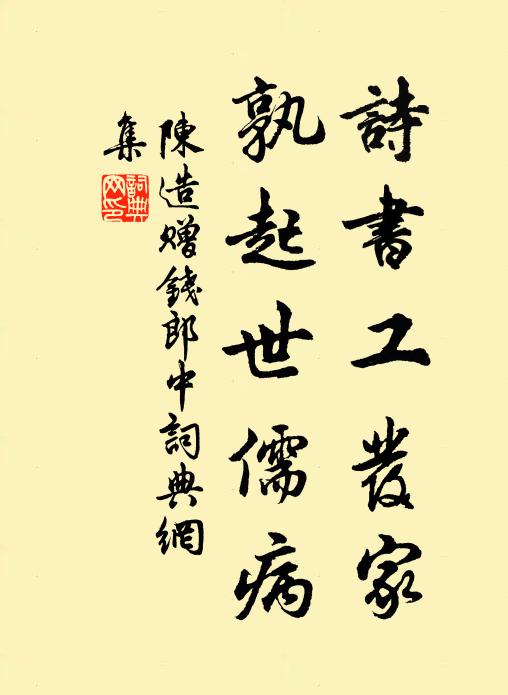 詩書工發家
孰起世儒病
陳造贈錢郎中詞典網
集
詞典網印